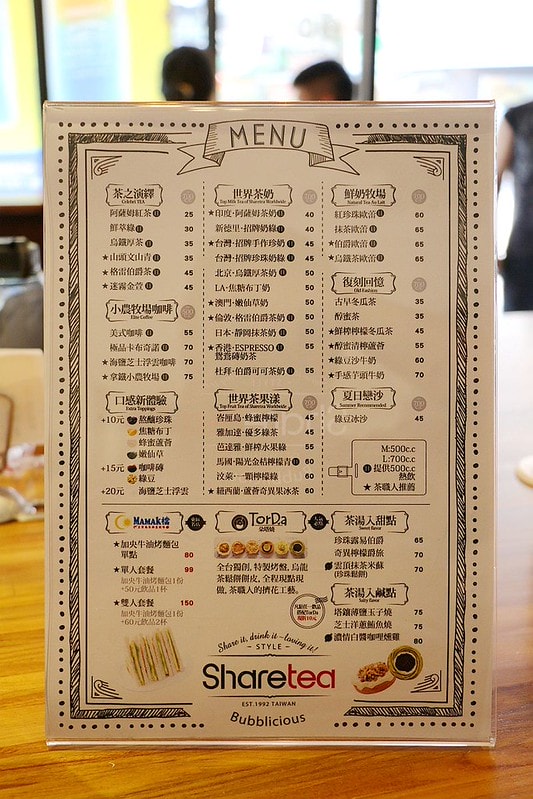 MENU
茶之演繹
Celebrit TEA
阿薩姆紅茶 25
鮮萃綠 30
烏鐵厚茶 35
★山頭文山青 35
★格雷伯爵茶 45
★迷霧金萱 45
小農牧場咖啡
Elite Coffee
美式咖啡 55
極品卡布奇諾 70
★海鹽芝士浮雲咖啡 70
★拿鐵小農牧場 75
口感新體驗
Extra Toppings
+10元 熬釀珍珠
焦糖布丁
蜂蜜蘆薈
嫩仙草
+15元 咖啡磚
綠豆
+20元 海鹽芝士浮雲
世界茶奶
Top Milk Tea of Sharetea Worldwide
★印度·阿薩姆茶奶 40
新德里·招牌奶綠 40
★台灣·招牌手作珍奶 45
台灣·招牌珍珠奶綠 45
北京·烏鐵厚茶奶 50
LA·焦糖布丁奶 50
★澳門·嫩仙草奶 50
★倫敦·格雷伯爵茶奶 50
★日本·靜岡抹茶奶 50
★香港·ESPRESSO
鴛鴦磚奶茶 55
杜拜·伯爵可可茶奶 60
世界茶果漾
Top Fruit Tea of Sharetea Worldwide
峇厘島·蜂蜜檸檬 45
雅加達·優多綠茶 45
芭達雅·鮮榨水果綠 55
馬國·陽光金桔檸檬青 60
汶萊·一顆檸檬綠 60
★紐西蘭·蘆薈奇異果冰茶 60
鮮奶牧場
Natural Tea Au Lait
紅珍珠歐蕾 60
抹茶歐蕾 60
★伯爵歐蕾 65
★烏鐵茶歐蕾 65
復刻回憶
Old Fashion
古早冬瓜茶 35
醇蜜茶 35
★鮮榨檸檬冬瓜茶 45
★醇蜜清檸蘆薈 55
★綠豆沙牛奶 60
★手感芋頭牛奶 70
夏日戀沙
Summer Recommended
綠豆冰沙 45
M:500c.c
L:700c.c
提供500c.c
熱飲
★茶職人推薦
MAMAK檔
★加央牛油烤麵包
單點 80
★單人套餐 99
加央牛油烤麵包1份
+50元飲品1杯
★雙人套餐 150
加央牛油烤麵包1份
+60元飲品2杯
TorDa
朵塔燒
全台獨創, 特製烤盤, 烏龍
茶鬆餅餅皮, 全程現點現
做, 茶職人的擠花工藝。
茶湯入甜點
Sweet flavor
珍珠露易伯爵 65
奇異檸檬爵旅 70
雲頂抹茶米蘇 70
(珍珠鬆餅)
茶湯入鹹點
Salty flavor
塔鐵薄鹽玉子燒 75
芝士洋蔥鮪魚燒 75
濃情白醬咖哩燻雞 80
Share it, drink it ~ loving it!
~ STYLE ~
Sharetea
EST.1992 TAIWAN
Bubblicious